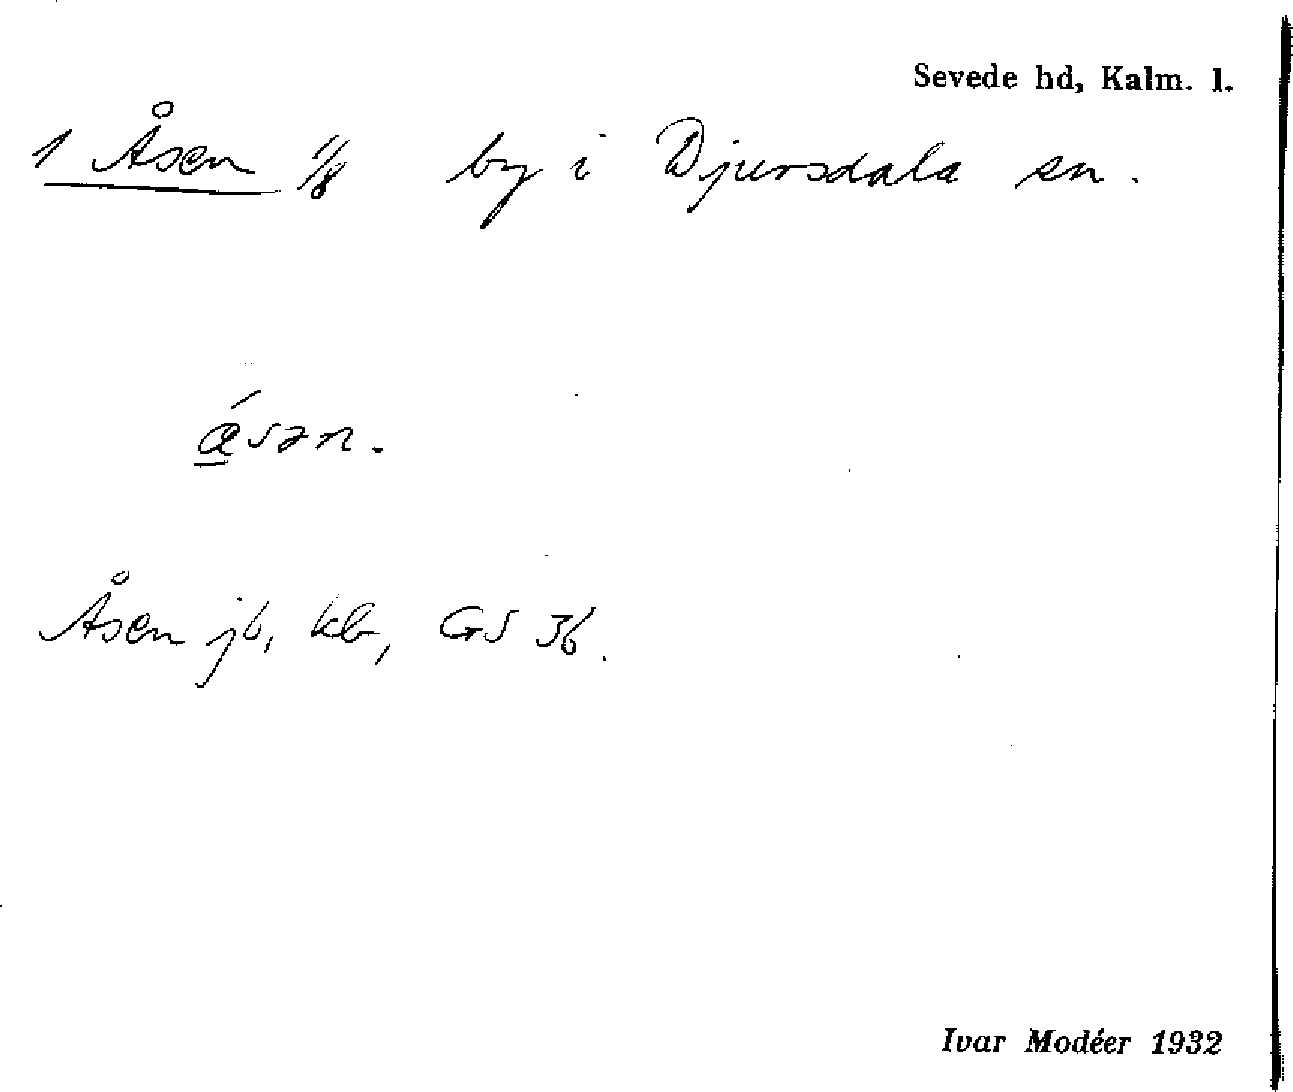 Sevede hd, Kalm. l.
1 Åsen 1/8 by i Djursdala sn.
ásən.
Åsen jb, kb, GS 36.
Ivar Modéer 1932